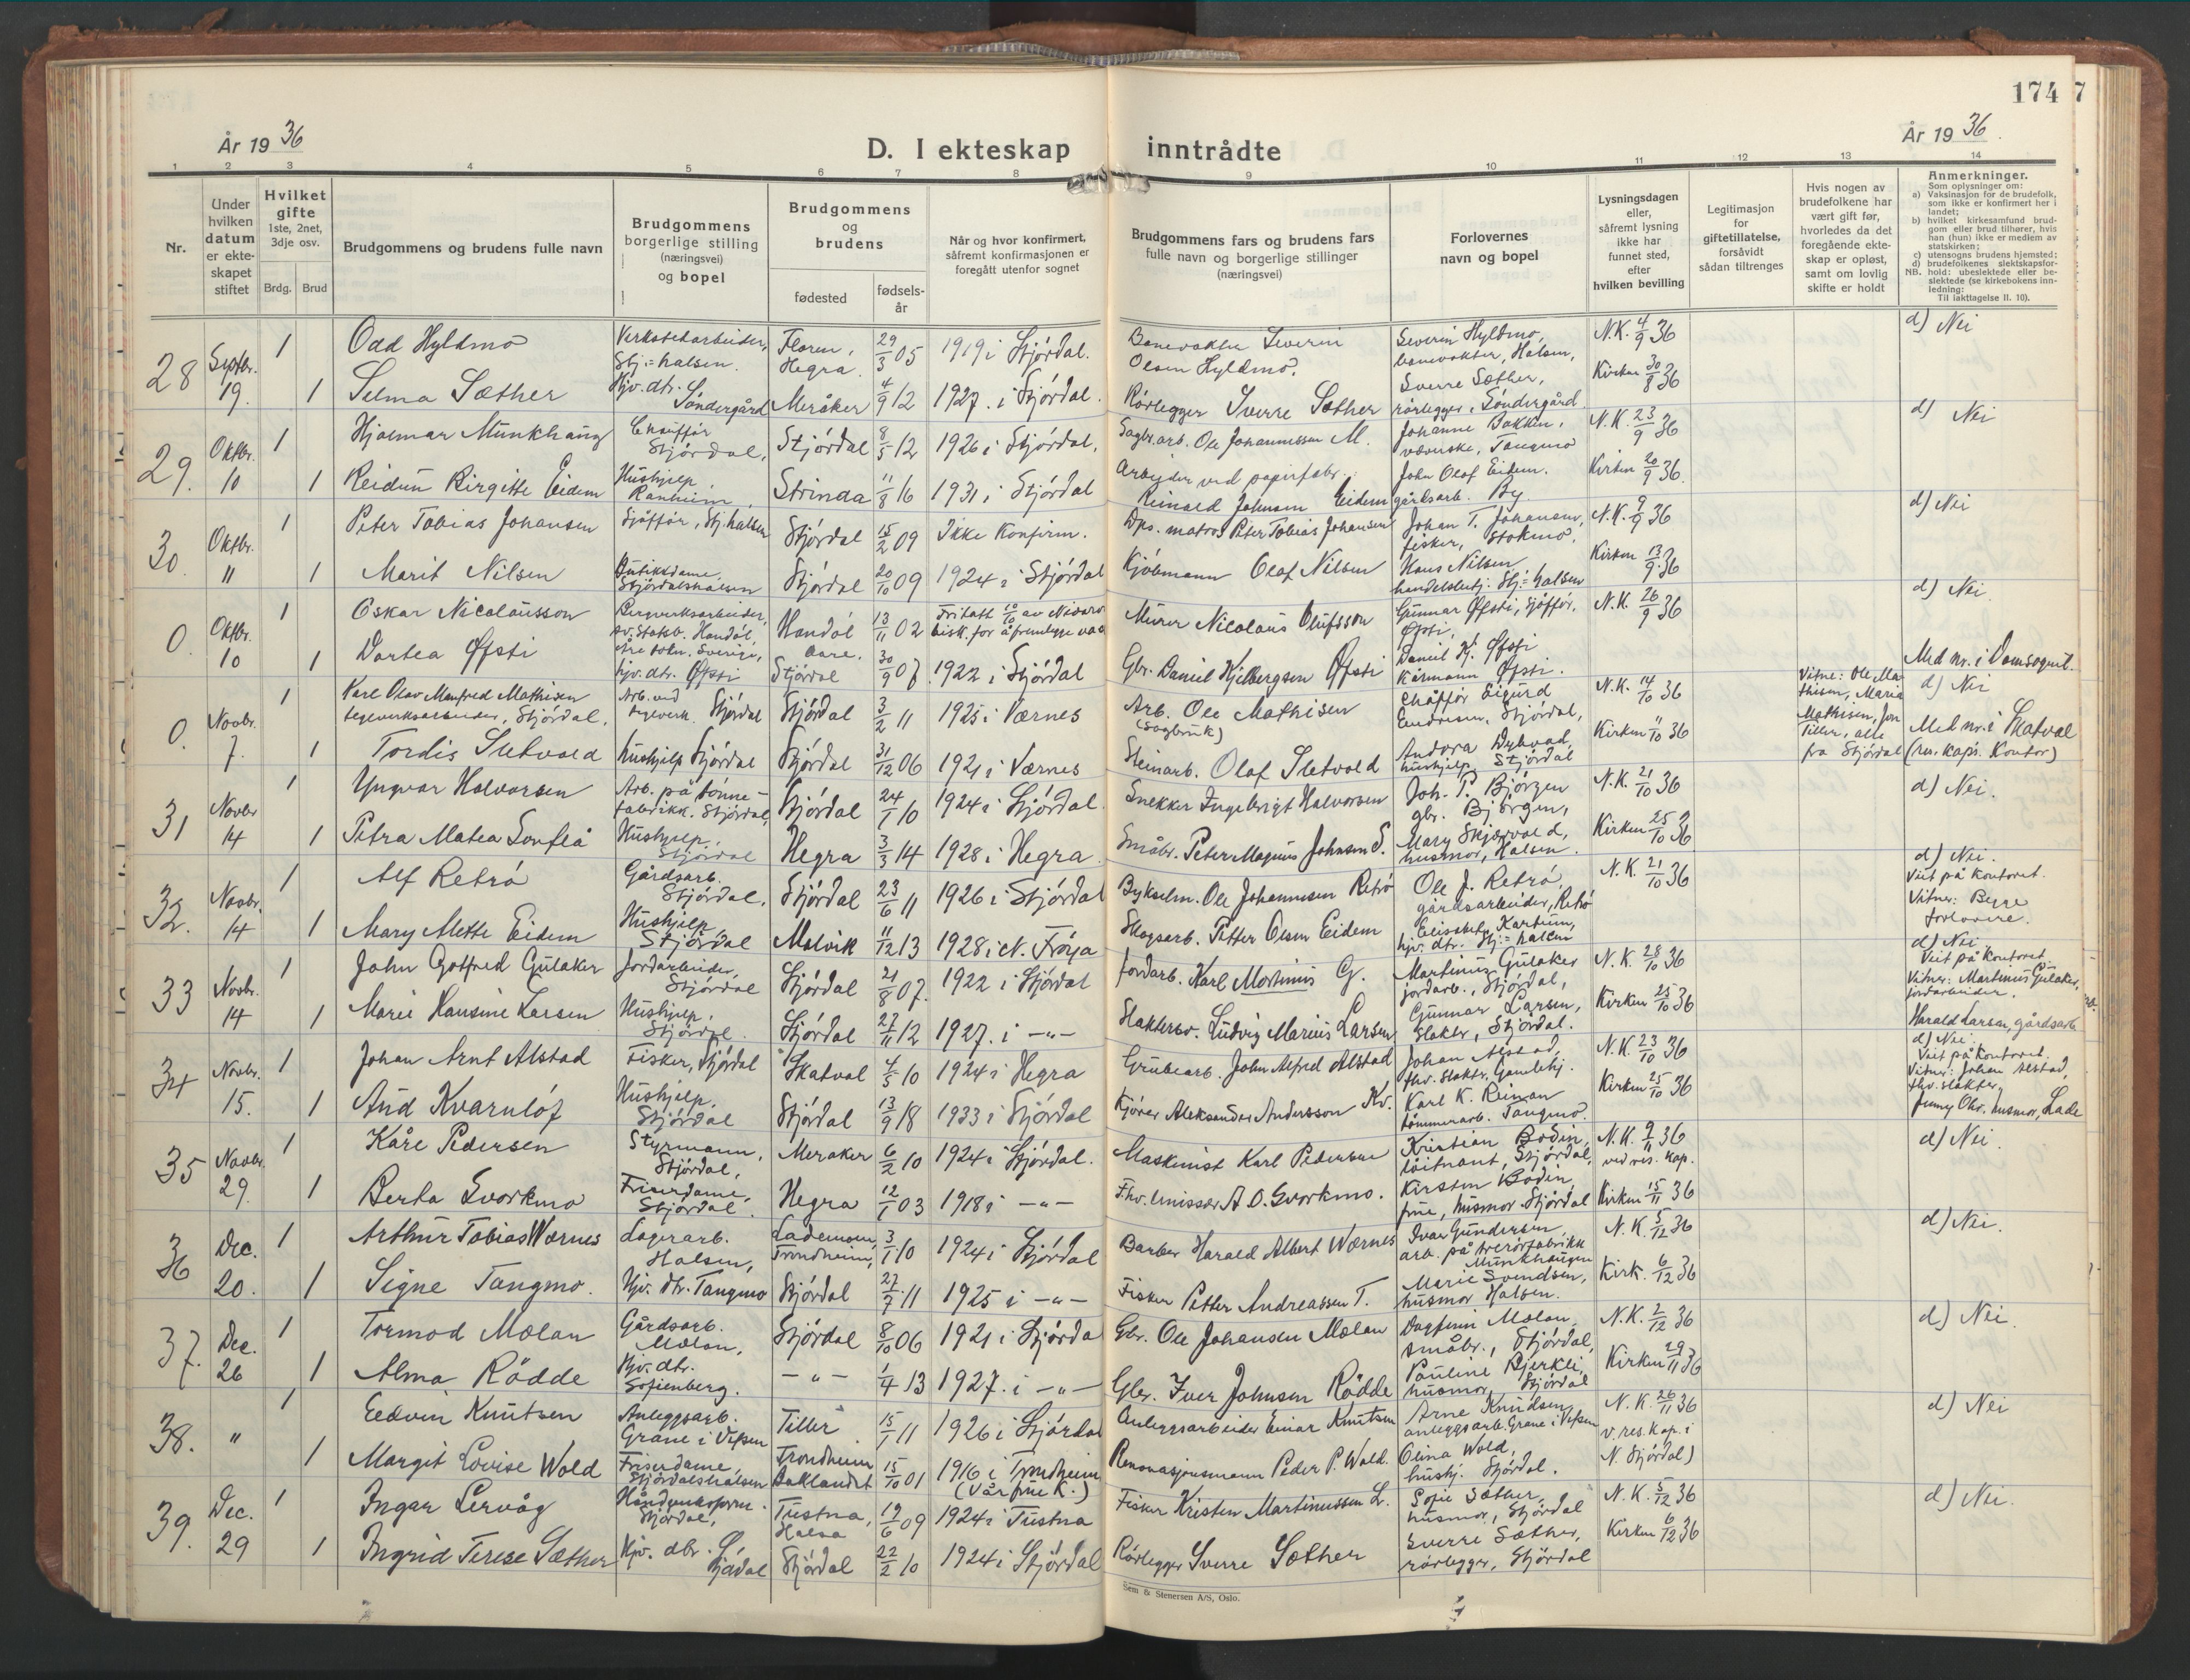 174
7
År 1936
D. I ekteskap inntrådte
År 1936.
1 2 3 4 5 6 7 8 9 10 11 12 13 14
Nr.
Under
hvilken
datum
er ekte-
skapet
stiftet
Hvilket
gifte
1ste, 2net,
3dje osv.
Brdg. Brud
Brudgommens og brudens fulle navn
Brudgommens
borgerlige stilling
(næringsvei)
og bopel
Brudgommens
og
brudens
fødested
fødsels-
år
Når og hvor konfirmert,
såfremt konfirmasjonen er
foregått utenfor sognet
Brudgommens fars og brudens fars
fulle navn og borgerlige stillinger
(næringsvei)
Forlovernes
navn og bopel
Lysningsdagen
eller,
såfremt lysning
ikke har
funnet sted,
efter
hvilken bevilling
Legitimasjon
for
giftetillatelse,
forsåvidt
sådan tiltrenges
Hvis nogen av
brudefolkene har
vært gift før,
hvorledes da det
foregående ekte-
skap er opløst,
samt om lovlig
skifte er holdt
Anmerkninger.
Som oplysninger om:
a) Vaksinasjon for de brudefolk,
som ikke er konfirmert her i
landet;
b) hvilket kirkesamfund brud-
gom eller brud tilhører, hvis
han (hun) ikke er medlem av
statskirken;
c) utensogns brudens hjemsted;
d) brudefolkenes slektskapsfor-
NB. hold: ubeslektede eller be-
slektede (se kirkebokens inn-
ledning:
Til iakttagelse II. 10).
28 Septbr. 19. 1 Odd Hyldmo Verkstedarbeider, Stj:halsen. Floren, Hegra. 29/3 05 1919 i Stjórdal. Banevokter Severin Olsen Hyldmo. Severin Hyldmo, banevokter, Halsen, N.K. 4/9 36 d) Nei
1 Selma Sæther Hjv. dtr. Söndergård Meråker 4/9 12 1927. i Stjórdal. Rórlegger Sverre Sæther Sverre Sæther, rórlegger, Söndergård Kirken 30/8 36
29. Oktbr. 10 1 Hjalmar Munkhaug Chaufför Stjórdal, Stjórdal 8/5 12 1926 i Stjórdal. Sagbr.arb. Ole Johannessen M. Johanne Bakken, væverske, Tangmo N.K. 23/9 36 d) Nei
1 Reidun Birgitte Eidem Hushjelp Ranheim Strinda 11/8 16 1931 i Stjórdal Arbejder ved papirfabr. Reinald Johnsen Eidem John Olaf Eidem. gårdsarb. By. Kirken 20/9 36.
30. Oktbr. 11 1 Peter Tobias Johansen Sjåffór, Stj.halsen Stjórdal 15/2 09 Ikke konfirm. Dps. matros Peter Tobias Johansen Johan T. Johansen, fisker, Stokmo. N.K. 9/9 36 d) Nei
1 Marit Nilsen Butikkdame, Stjórdalshalsen Stjórdal 20/10 09 1924 i Stjórdal Kjóbmann Olaf Nilsen Hans Nilsen handelsbetj. Stj:halsen Kirken 13/9 36
0. Oktbr. 10 1 Oskar Nicolausson Bergverksarbeider, Handól, Sverige, Handól Åre. 13/11 02 Fritatt 10/10 av Nidaros bisk. for å fremlegge Murer Nicolaus Olufsson Gunnar Øfsti, Sjåffór. Øfsti, N.K. 26/9 36 d) Nei
1 Dortea Øfsti hjv. dtr. Øfsti Stjórdal 30/9 07. 1922 i Stjórdal Gbr. Daniel Kjelbergsen Øfsti Daniel Kj. Øfsti Kårmann Øfsti. Med nr. i Domsognet.
0. Novbr. 7. 1 Karl Olav Manfred Mathisen teglverksarbeider, Stjórdal. Arb. ved teglverk. Stjórdal Stjórdal 3/2 11 1925 i Værnes Arb. Ole Mathisen (Sagbruk) Chåffór Sigurd Stjórdal, N.K. 14/10 36 Vitne: Ole Mathisen, Maria Mathisen, Jon Tiller, alle fra Stjórdal d) Nei
1 Tordis Sletvold hushjelp Stjórdal Stjórdal 31/12 06 1921 i Værnes Steinarb. Olaf Sletvold Andora Dybvad, hushjelp, Stjórdal Kirken 11/10 36 Med nr. i Skatval (res. kap's. Kontor)
31 Novbr 14 1 Yngvar Halvorsen Arb. på tónne-fabrikk. Stjórdal, Stjórdal 24/1 10 1924 i Stjórdal. Snekker Ingebrigt Halvorsen Joh. P. Bjórgen gbr. Bjórgen, N.K. 21/10 36 d) Nei.
1 Petra Matea Sonflå Hushjelp, Stjórdal Hegra 3/3 14 1928 i Hegra. Småbr. Peter Magnus Johnsen S. Mary Skjærvold, husmor, Halsen. Kirken 25/10 36
32. Novbr. 14 1 Alf Retró Gårdsarb. Stjórdal. Stjórdal 23/6 11 1926 i Stjórdal Bykselm. Ole Johannesen Retró Ole J. Retró, gårdsarbeider, Retró N.K. 21/10 36 d) Nei. Viet på kontoret. Vitner: Begge forlovere.
1 Mary Mette Eidem Hushjelp, Stjórdal Malvik 11/12 13 1928 i N. Fróya Skogsarb. Petter Olsen Eidem Elisabet Kartum, hjv. dtr. Stj:halsen
33 Novbr. 14 1 John Gotfred Gulaker Jordarbeider, Stjórdal Stjórdal 21/8 07. 1922 i Stjórdal Jordarb. Karl Martinus G. Martinus Gulaker jordarb., Stjórdal, N.K. 28/10 36 d) Nei. Viet på kontoret Vitner: Martinus Gulaker, jordarbeider.
1 Marie Hansine Larsen Hushjelp. Stjórdal. Stjórdal 27/11 12 1927. i -"- Slaktersv. Ludvig Marius Larsen Gunnar Larsen, Slakter, Stjórdal. Kirken 25/10 36 Harald Larsen, gårdsarb.
34 Novbr. 15. 1 Johan Arnt Alstad Fisker, Stjórdal Skatval 4/5 10 1924 i Hegra Grubearb. John Alfred Alstad Johan Alstad, fhv. slakter, Gamlehj. N.K. 23/10 36 d) Nei. Viet på kontoret. Vitner: Johan Alstad, fhv. slakter,
1 Aud Kvarnlóf Hushjelp. Stjórdal Stjórdal 13/9 18 1933 i Stjórdal Kjórer Aleksander Andersson Kv. Karl K. Reiman tómmerarb. Tangmo. Kirken 25/10 36 Jenny Ohr. husmor, Lade
35 Novbr. 29. 1 Kåre Pedersen Styrmann, Stjórdal, Meraker 6/2 10 1924 i Stjórdal. Maskinist Karl Pedersen Kristian Bodin, lóitnant, Stjórdal, N.K. 9/11 36 ved res. kap. d) Nei.
1 Berta Svorkmo Friserdame, Stjórdal. Hegra 12/1 03 1918 i -"- Fhv. A. O. Svorkmo. Kirsten Bodin, frue, husmor Stjórdal Kirken 15/11 36
36 Dec. 20. 1 Arthur Tobias Wærnes Lagerarb. Halsen, Lademoen, Trondheim, 3/1 10 1924 i Stjórdal Barber Harald Albert Wærnes Ivar Gundersen arb. på trerórfabrikk Munkhaugen N.K. 5/12 36 d) Nei.
1 Signe Tangmo. Hjv. dtr. Tangmo Stjórdal 27/7 11 1925 i -"- Fisker Petter Andreassen T. Marie Svendsen, husmor Halsen. Kirk. 6/12 36
37. Dec. 26 1 Tormod Mælan Gårdsarb. Mælan, Stjórdal 8/10 06 1921 i Stjórdal Gbr. Ole Johansen Mælan Dagfinn Mælan, småbr., Stjórdal, N.K. 2/12 36 d) Nei
1 Alma Rödde Hjv. dtr. Sofienberg. -"- 1/4 13 1927. i -"- Gbr. Iver Johnsen Rödde Pauline Bjerkli, husmor, Stjórdal Kirken 29/11 36
38. " 1 Eedvin Knutsen Anleggsarb. Grane i Vefsen Tiller 15/1 11 1926 i Stjórdal Anleggsarbeider Einar Knutsen Arne Knudsen, anleggsarb. Grane i Vefsen N.K. 26/11 36 v. res. kap. i d) Nei
1 Margit Lovise Wold Friserdame, Stjórdalshalsen Trondheim Baklandet 15/10 01 1916 i Trondheim (Vår frue K.) Renovasjonsmann Peder P. Wold. Olina Wold, hushj. Stjórdal. N. Stjórdal)
39. Dec. 29 1 Ingar Lervåg Stjórdal, Tustna, Halsa 19/6 09 1924 i Tustna Fisker Kristen Martinussen L. Sofie Sæther, husmor, Stjórdal N.K. 5/12 36 d) Nei.
1 Ingrid Terese Sæther Hjv. dtr. Stjórdal Stjórdal 22/2 10 1924 i Stjórdal Rórlegger Sverre Sæther Sverre Sæther, rórlegger, Stjórdal Kirken 6/12 36
Sem & Stenersen A/S, Oslo.